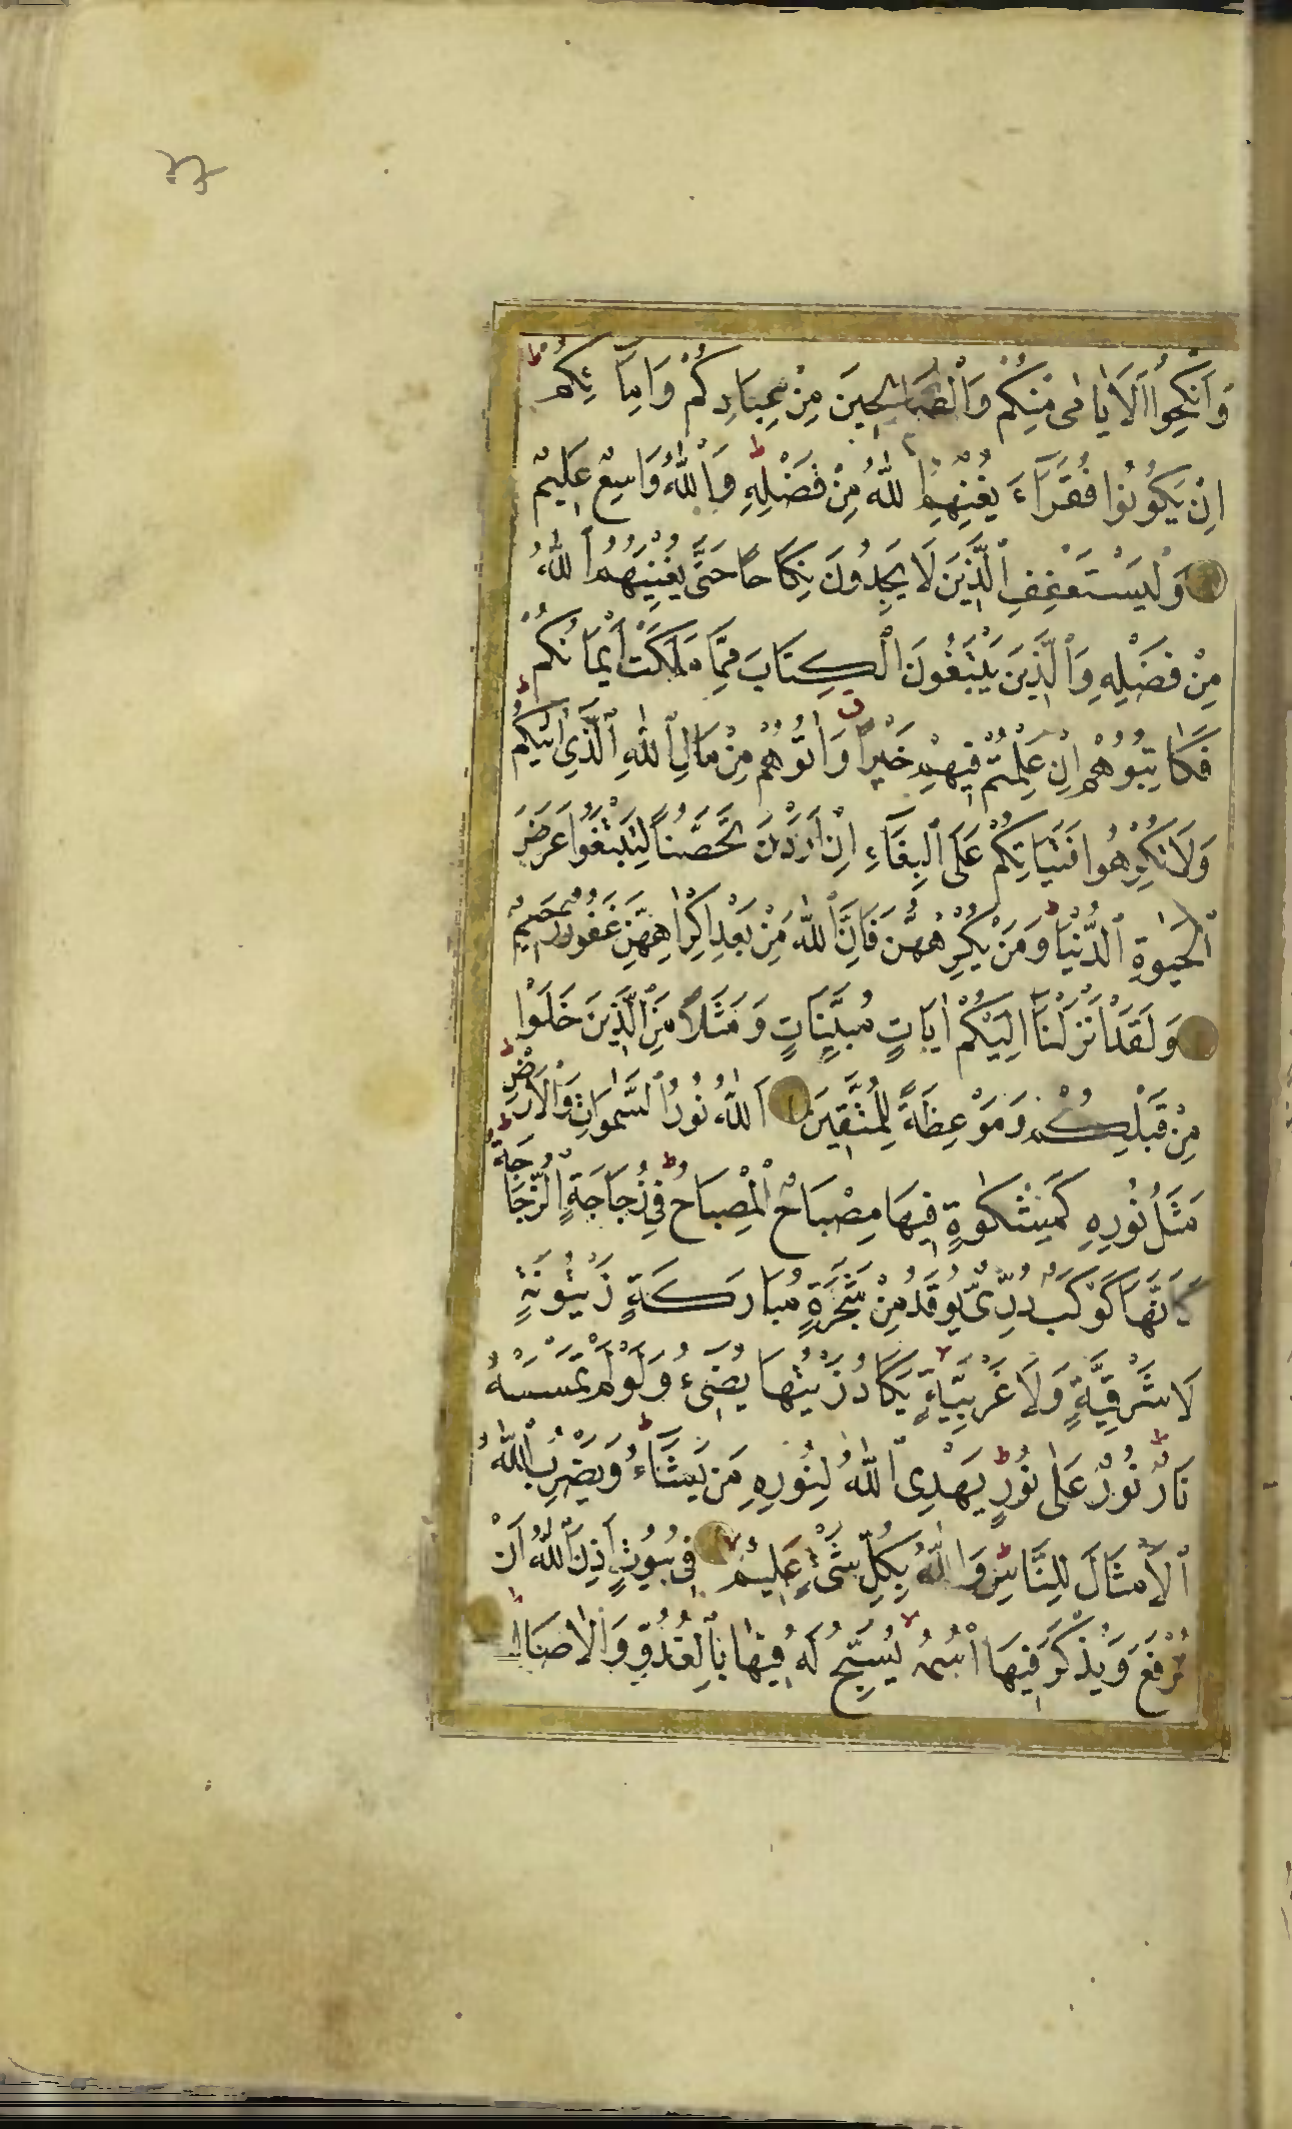 وَاَنْكِحُوا الْاَيَامٰى مِنْكُمْ وَالْصَّالِحِينَ مِنْ عِبَادِكُمْ وَاِمَآئِكُمْ ط
اِنْ يَكُونُوا فُقَرَآءَ يُغْنِهِمُ اللّٰهُ مِنْ فَضْلِهِ ط وَاللّٰهُ وَاسِعٌ عَلِيمٌ
وَلْيَسْتَعْفِفِ الَّذِينَ لَا يَجِدُونَ نِكَاحًا حَتّٰى يُغْنِيَهُمُ اللّٰهُ
مِنْ فَضْلِهِ وَالَّذِينَ يَبْتَغُونَ الْكِتَابَ مِمَّا مَلَكَتْ اَيْمَانُكُمْ
فَكَاتِبُوهُمْ اِنْ عَلِمْتُمْ فِيهِمْ خَيْرًا ق وَاٰتُوهُمْ مِنْ مَالِ اللّٰهِ الَّذِى اٰتٰيكُمْ ط
وَلَا تُكْرِهُوا فَتَيَاتِكُمْ عَلَى الْبِغَآءِ اِنْ اَرَدْنَ تَحَصُّنًا لِتَبْتَغُوا عَرَضَ
الْحَيٰوةِ الدُّنْيَا ط وَمَنْ يُكْرِهْهُنَّ فَاِنَّ اللّٰهَ مِنْ بَعْدِ اِكْرَاهِهِنَّ غَفُورٌ رَحِيمٌ
وَلَقَدْ اَنْزَلْنَآ اِلَيْكُمْ اٰيَاتٍ مُبَيِّنَاتٍ وَمَثَلًا مِنَ الَّذِينَ خَلَوْا
مِنْ قَبْلِكُمْ وَمَوْعِظَةً لِلْمُتَّقِينَ اَللّٰهُ نُورُ السَّمٰوَاتِ وَالْاَرْضِ ط
مَثَلُ نُورِهِ كَمِشْكٰوةٍ فِيهَا مِصْبَاحٌ ط الْمِصْبَاحُ فِى زُجَاجَةٍ اَلزُّجَاجَةُ ط
كَاَنَّهَا كَوْكَبٌ دُرِّىٌّ يُوقَدُ مِنْ شَجَرَةٍ مُبَارَكَةٍ زَيْتُونَةٍ
لَا شَرْقِيَّةٍ وَلَا غَرْبِيَّةٍ لا يَكَادُ زَيْتُهَا يُضِىٓءُ وَلَوْ لَمْ تَمْسَسْهُ
نَارٌ ط نُورٌ عَلٰى نُورٍ ط يَهْدِى اللّٰهُ لِنُورِهِ مَنْ يَشَآءُ ط وَيَضْرِبُ اللّٰهُ
الْاَمْثَالَ لِلنَّاسِ ط وَاللّٰهُ بِكُلِّ شَىْءٍ عَلِيمٌ لا فِى بُيُوتٍ اَذِنَ اللّٰهُ اَنْ
تُرْفَعَ وَيُذْكَرَ فِيهَا اسْمُهُ لا يُسَبِّحُ لَهُ فِيهَا بِالْغُدُوِّ وَالْاٰصَالِ